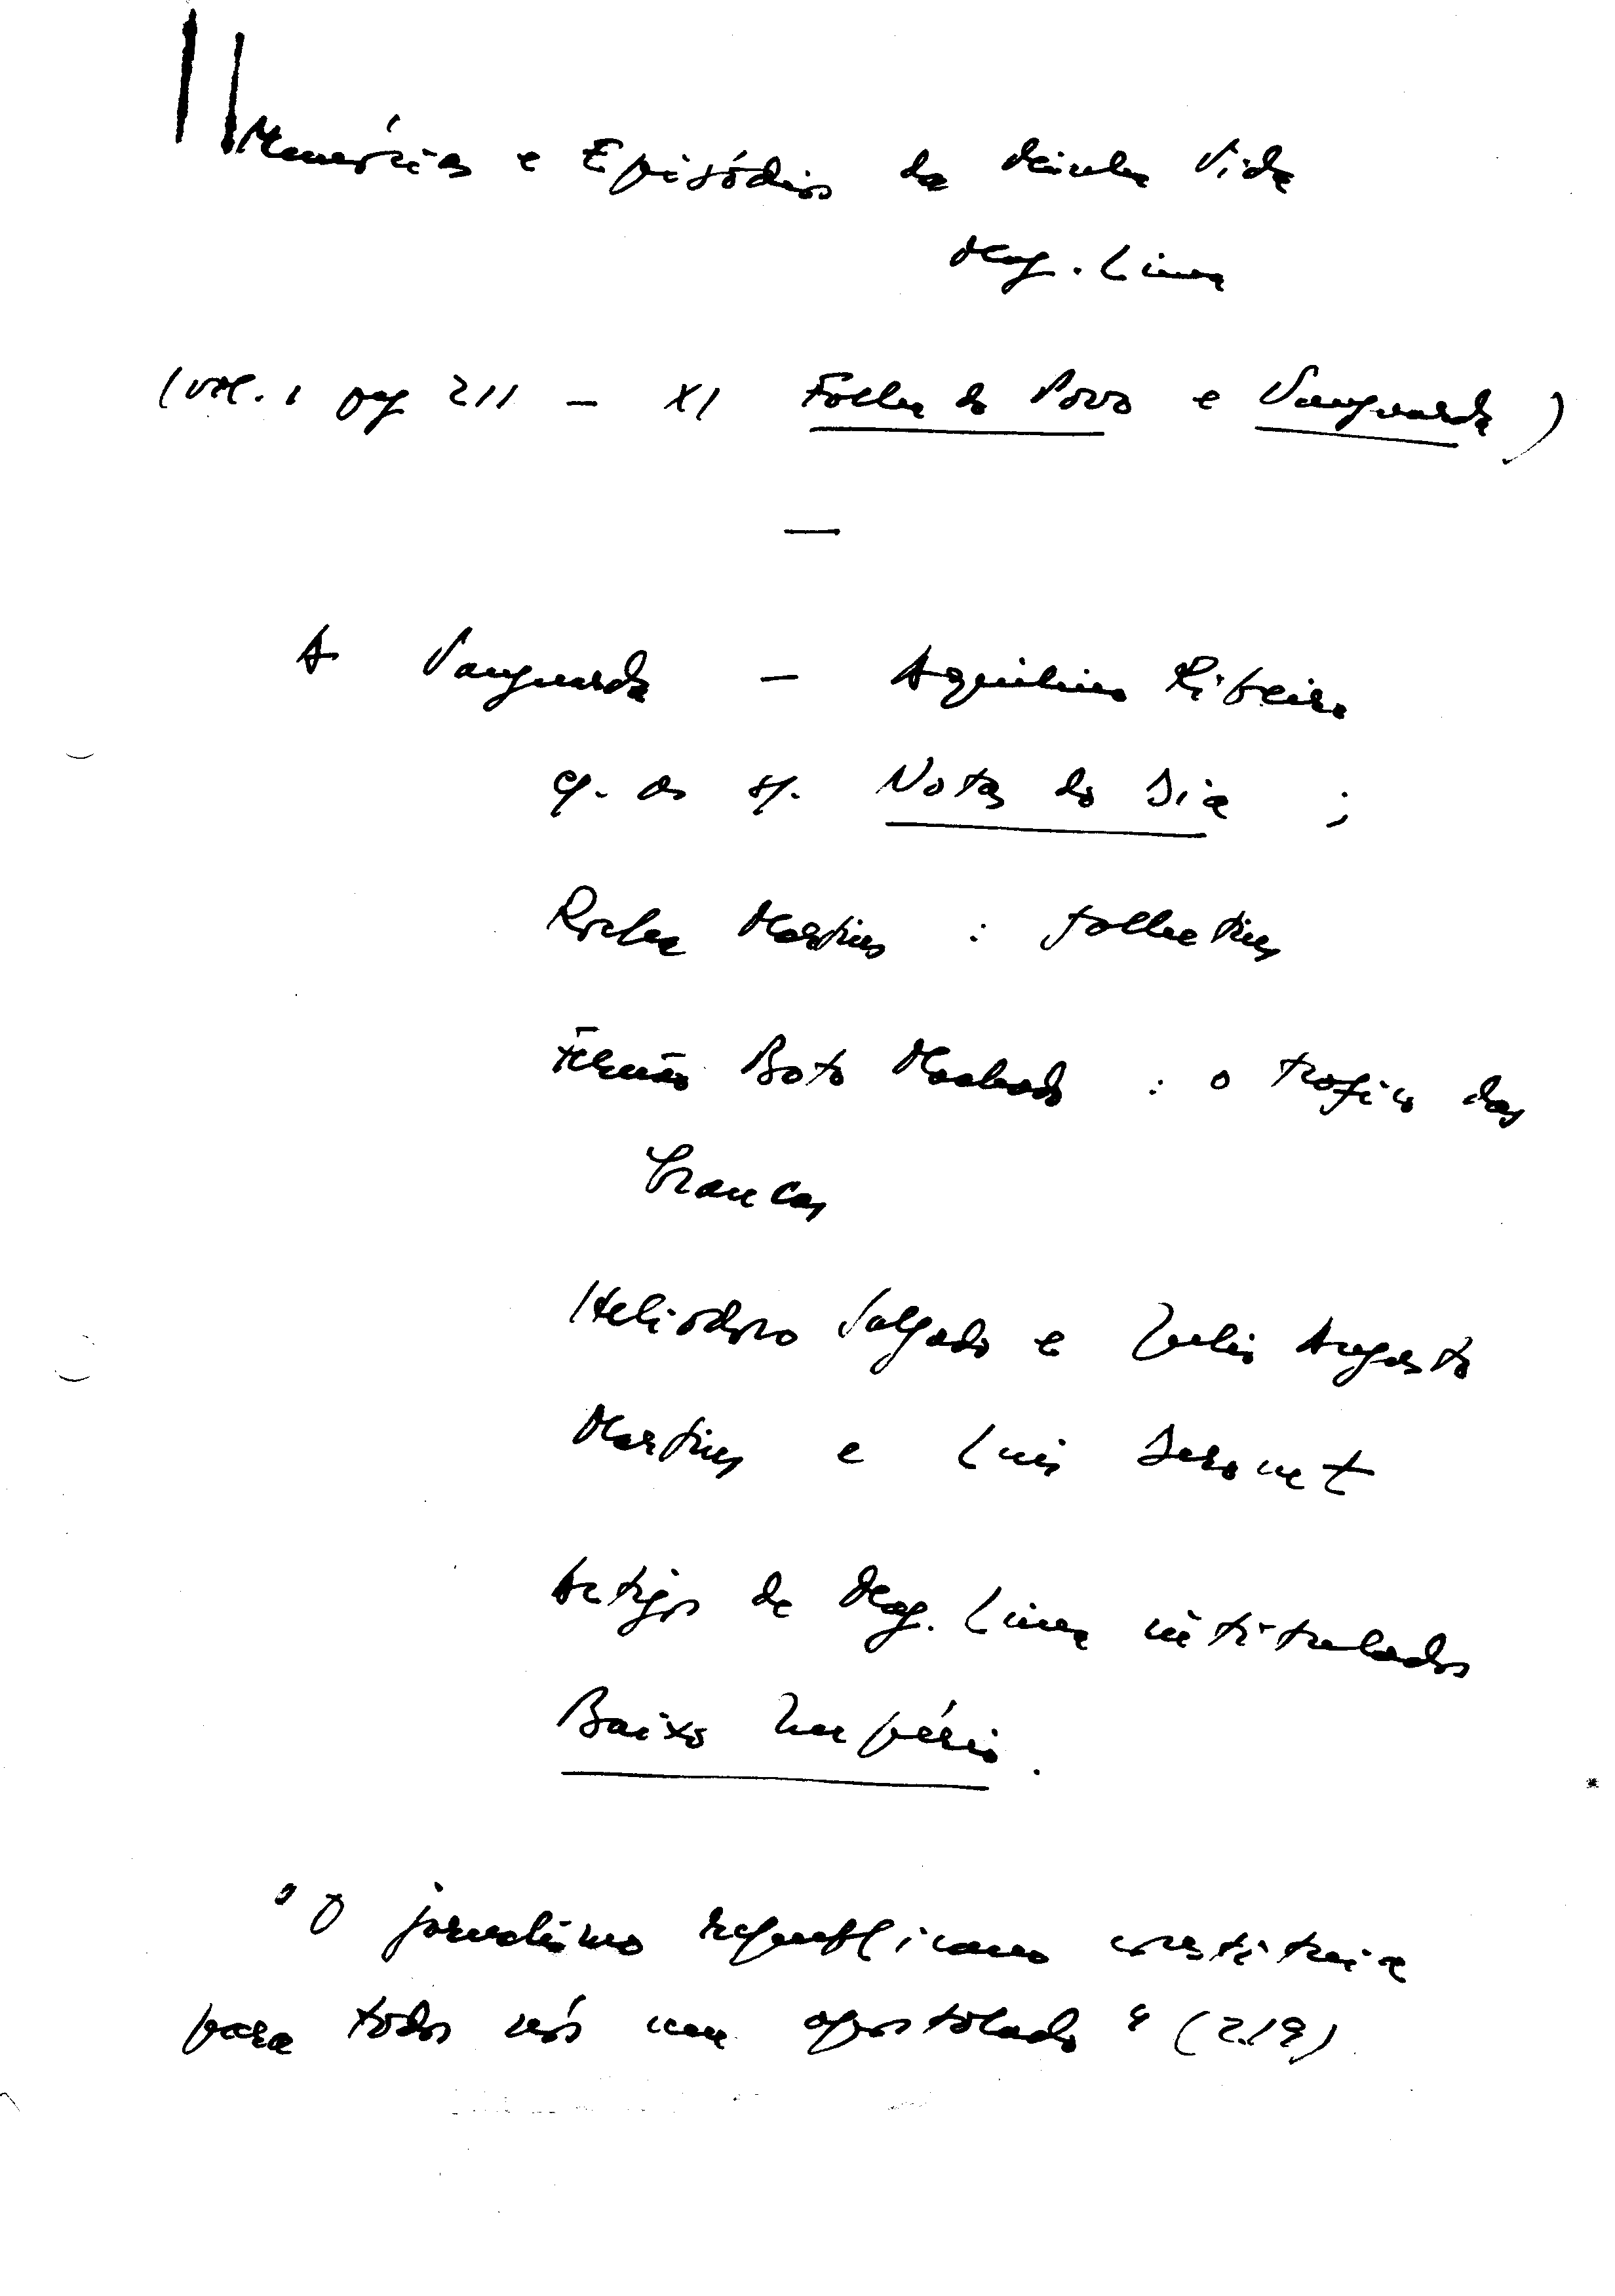 Memórias e Episódios da Minha Vida
Mag. Lima
(vol. 1 pag 211 – XI Folha do Povo e Vanguarda)
—
A Vanguarda – Aquilino Ribeiro
Notas do Dia ;
Rocha Martins : folhetins
Fernão Boto Machado : o tráfico das
brancas
Heliodoro Salgado e Julio Augusto
Martins e Luis Derouet
Artigos de Mag. Lima intitulados
Baixo Império.
"O jornalismo republicano constituia
para todos nós um apostolado" (219)